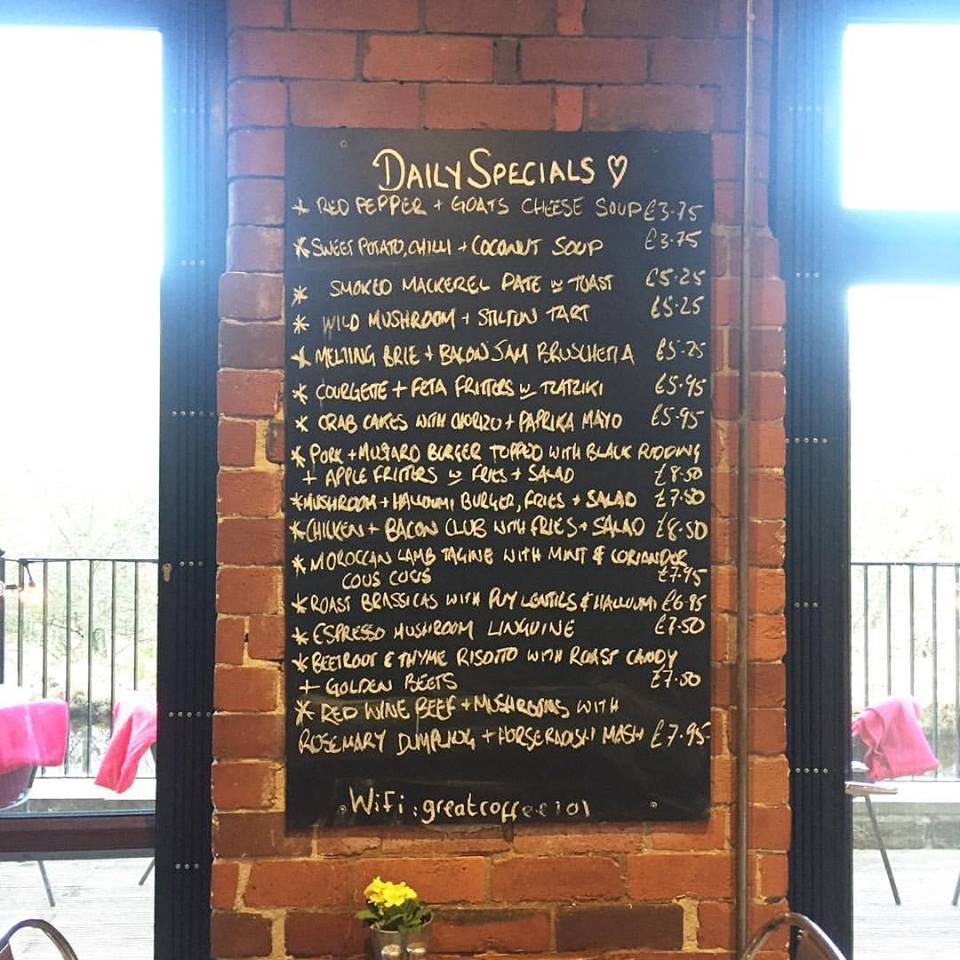 DAILY SPECIALS ♡
* RED PEPPER + GOATS CHEESE SOUP £3.75
* SWEET POTATO, CHILLI + COCONUT SOUP £3.75
* SMOKED MACKEREL PATE w TOAST £5.25
* WILD MUSHROOM + STILTON TART £5.25
* MELTING BRIE + BACON JAM BRUSCHETTA £5.25
* COURGETTE + FETA FRITTERS w TZATZIKI £5.95
* CRAB CAKES WITH CHORIZO + PAPRIKA MAYO £5.95
* PORK + MUSTARD BURGER TOPPED WITH BLACK PUDDING
+ APPLE FRITTERS w FRIES + SALAD £8.50
* MUSHROOM + HALLOUMI BURGER, FRIES + SALAD £7.50
* CHICKEN + BACON CLUB WITH FRIES + SALAD £8.50
* MOROCCAN LAMB TAGINE WITH MINT & CORIANDER
COUS COUS £7.95
* ROAST BRASSICAS WITH PUY LENTILS & HALLOUMI £6.95
* ESPRESSO MUSHROOM LINGUINE £7.50
* BEETROOT & THYME RISOTTO WITH ROAST CANDY
+ GOLDEN BEETS £7.50
* RED WINE BEEF + MUSHROOMS WITH
ROSEMARY DUMPLING + HORSERADISH MASH £7.95
WiFi : greatcoffee101